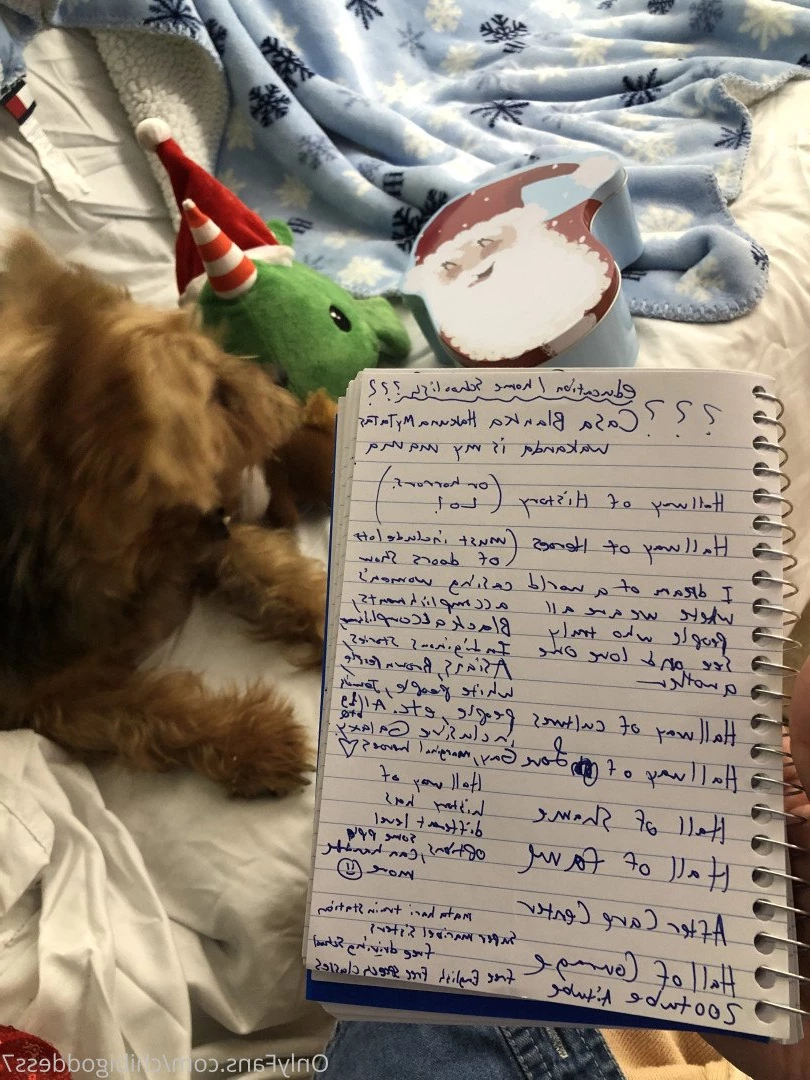 education / home schoolish ???
??? Casa Blanka HakunaMyTatas
wakanda is my mama
Hallway of History (or horrors? Lol)
Hallway of Heroes (must include lots
of doors show
casing women's
accomplishments,
Black accomplishm
Indiginous stories,
Asians, Brown People
white people, Jewish
people, etc. All (lg
btq
inclusive Galaxy.
Gay, marginal heroes
I dream of a world
where we are all
people who truly
see and love one
another
Hallway of cultures
Hallway of Love
Hallway of
history has
different level
options, some ppl
can handle
more
Hall of Shame
Hall of fame
After Care Center
mata hari train station
super maribel sisters
free driving school
free English Free speech classes
Hall of Courage
zootube
OnlyFans.com/chibigoddess7